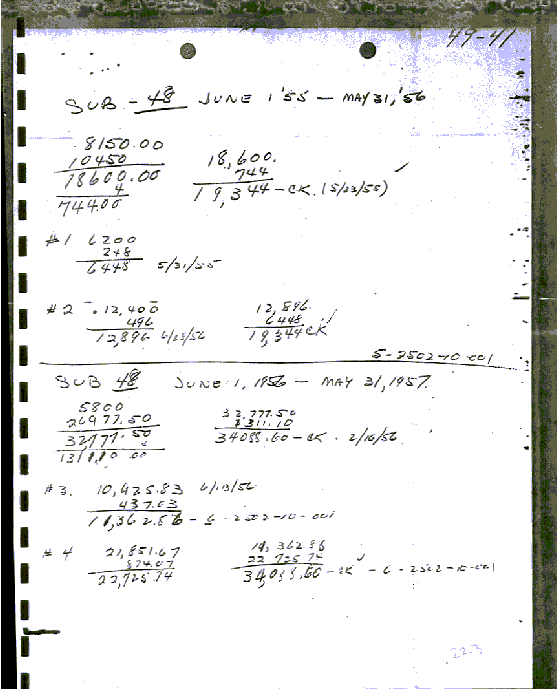 49-41
SUB - 48 JUNE 1 '55 - MAY 31, '56
8150.00
10450
18600.00
4
744.00
18,600.
744
19,344 - CK. (5/23/55)
#1 6200
248
6448 5/31/55
#2 12,400
496
12,896
12,896.
6448
19,344 CK
5-2502-10-001
SUB 48 JUNE 1, 1956 - MAY 31, 1957.
5800
26977.50
32777.50
32,777.50
1311.10
34088.60 - CK. 2/16/56
#3. 10,925.83 6/13/56
437.03
11,362.86 - 6-2502-10-001
#4 21,851.67
874.07
22,725.74
11,362.86
22,725.74
34,088.60 - CK - 6-2502-10-001
223